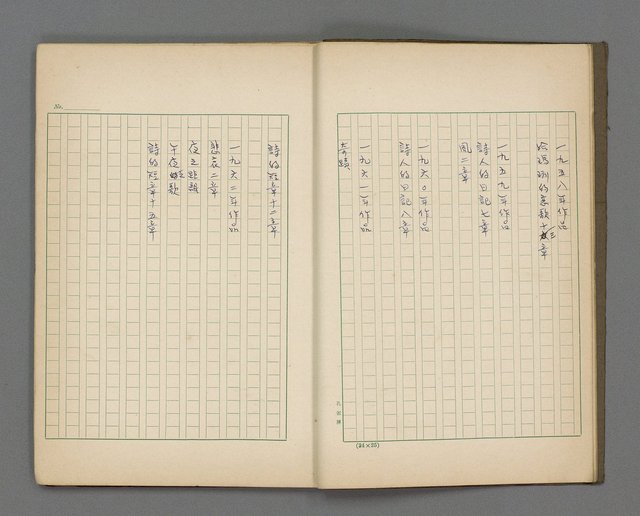 一九五八年作品
哈瑪斯的哀歌十三章
一九五九年作品
詩人的日記七章
風二章
一九六〇年作品
詩人的日記八章
一九六一年作品
奇蹟
No.
詩的短章十二章
一九六二年作品
悲哀二章
夜之跫音
午夜之歌
詩的短章十五章
(24×25)